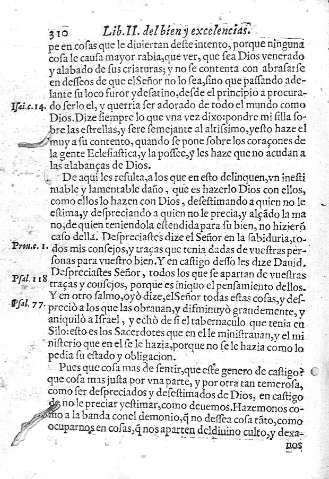 310 Lib. II. del bien y excelencias.
pe en cosas que le diuiertan deste intento, porque ninguna
cosa le causa mayor rabia, que ver, que sea Dios venerado
y alabado de sus criaturas; y no se contenta con abrasarse
en desseos de que el Señor no lo sea, sino que passando ade-
lante su loco furor y desatino, desde el principio a procura-
Isai. c. 14. do serlo el, y querria ser adorado de todo el mundo como
Dios. Dize siempre lo que vna vez dixo: pondre mi silla so-
bre las estrellas, y sere semejante al altissimo, y esto haze el
muy a su contento, quando se pone sobre los coraçones de
la gente Eclesiastica, y la possee, y les haze que no acudan a
las alabanças de Dios.
De aqui les resulta, a los que en esto delinquen, vn inesti
mable y lamentable daño, que es hazerlo Dios con ellos,
como ellos lo hazen con Dios, desestimando a quien no le
estima, y despreciando a quien no le precia, y alçãdo la ma
no, de quien teniendola estendida para su bien, no hizierõ
Prou. c. 1. caso della. Despreciastes dize el Señor en la sabiduria, to-
dos mis consejos, y traças que tenia dadas de vuestras per-
sonas para vuestro bien. Y en castigo desso les dize Dauid.
Psal. 118 Despreciastes Señor, todos los que se apartan de vuestras
traças y consejos, porque es iniquo el pensamiento dellos.
Psal. 77. Y en otro salmo, oyò dize, el Señor todas estas cosas, y des-
preciò a los que las obrauan, y disminuyò grandemente, y
aniquilò a Israel, y echò de si el tabernaculo que tenia en
Silo: esto es los Sacerdotes que en el le ministrauan, y el mi
nisterio que en el se le hazia, porque no se le hazia como lo
pedia su estado y obligacion.
Pues que cosa mas de sentir, que este genero de castigo?
que cosa mas justa por vna parte, y por otra tan temerosa,
como ser despreciados y desestimados de Dios, en castigo
de no le preciar y estimar, como deuemos. Hazemonos co-
mo a la banda con el demonio, q̃ no dessea cosa tãto, como
ocuparnos en cosas, q̃ nos aparten del diuino culto, y dexa-
nos